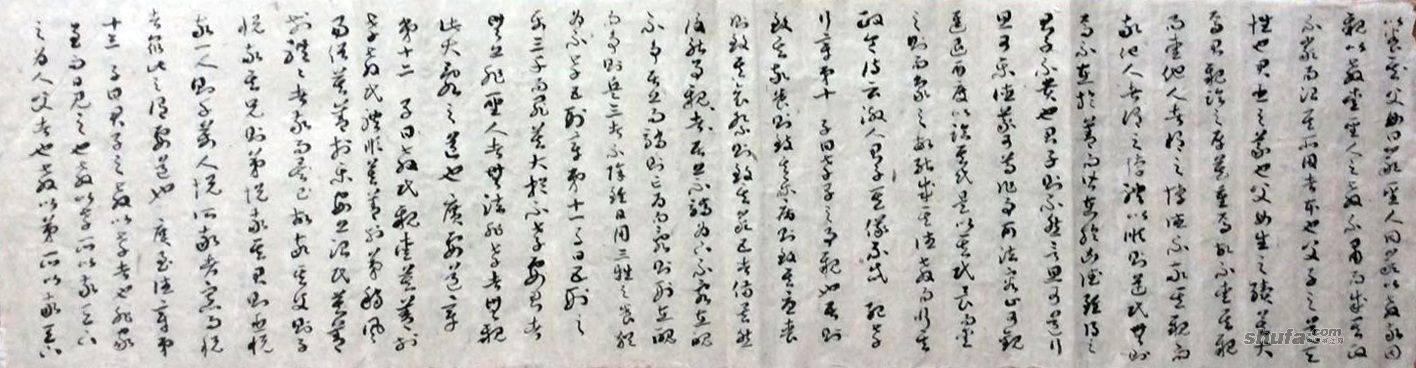 以養父母日嚴聖人因嚴以教敬因
親以教愛聖人之教不肅而成其政
不嚴而治其所因者本也父子之道天
性也君臣之義也父母生之續莫大
焉君親臨之厚莫重焉故不愛其親
而愛他人者謂之悖德不敬其親而
敬他人者謂之悖禮以順則逆民無則
焉不在於善而皆在於凶德雖得之
君子不貴也君子則不然言思可道行
思可樂德義可尊作事可法容止可觀
進退可度以臨其民是以其民畏而愛
之則而象之故能成其德教而行其
政令詩云淑人君子其儀不忒 紀孝
行章第十 子曰孝子之事親也居則
致其敬養則致其樂病則致其憂喪
則致其哀祭則致其嚴五者備矣然
後能事親者居上不驕為下不亂在醜
不爭居上而驕則亡為下而亂則刑在醜
而爭則兵三者不除雖日用三牲之養猶
為不孝 五刑章第十一 子曰五刑之
屬三千而罪莫大於不孝要君者
無上非聖人者無法非孝者無親
此大亂之道也 廣要道章
第十二 子曰教民親愛莫善於
孝教民禮順莫善於弟移風
易俗莫善於樂安上治民莫善
於禮禮者敬而已故敬其父則子
悅敬其兄則弟悅敬其君則臣悅
敬一人則千萬人悅所敬者寡而悅
者眾此之謂要道也 廣至德章第
十三 子曰君子之教以孝者也非家
至而日見之也教以孝所以敬天下
之為人父者也教以弟所以敬天下
shufa.com